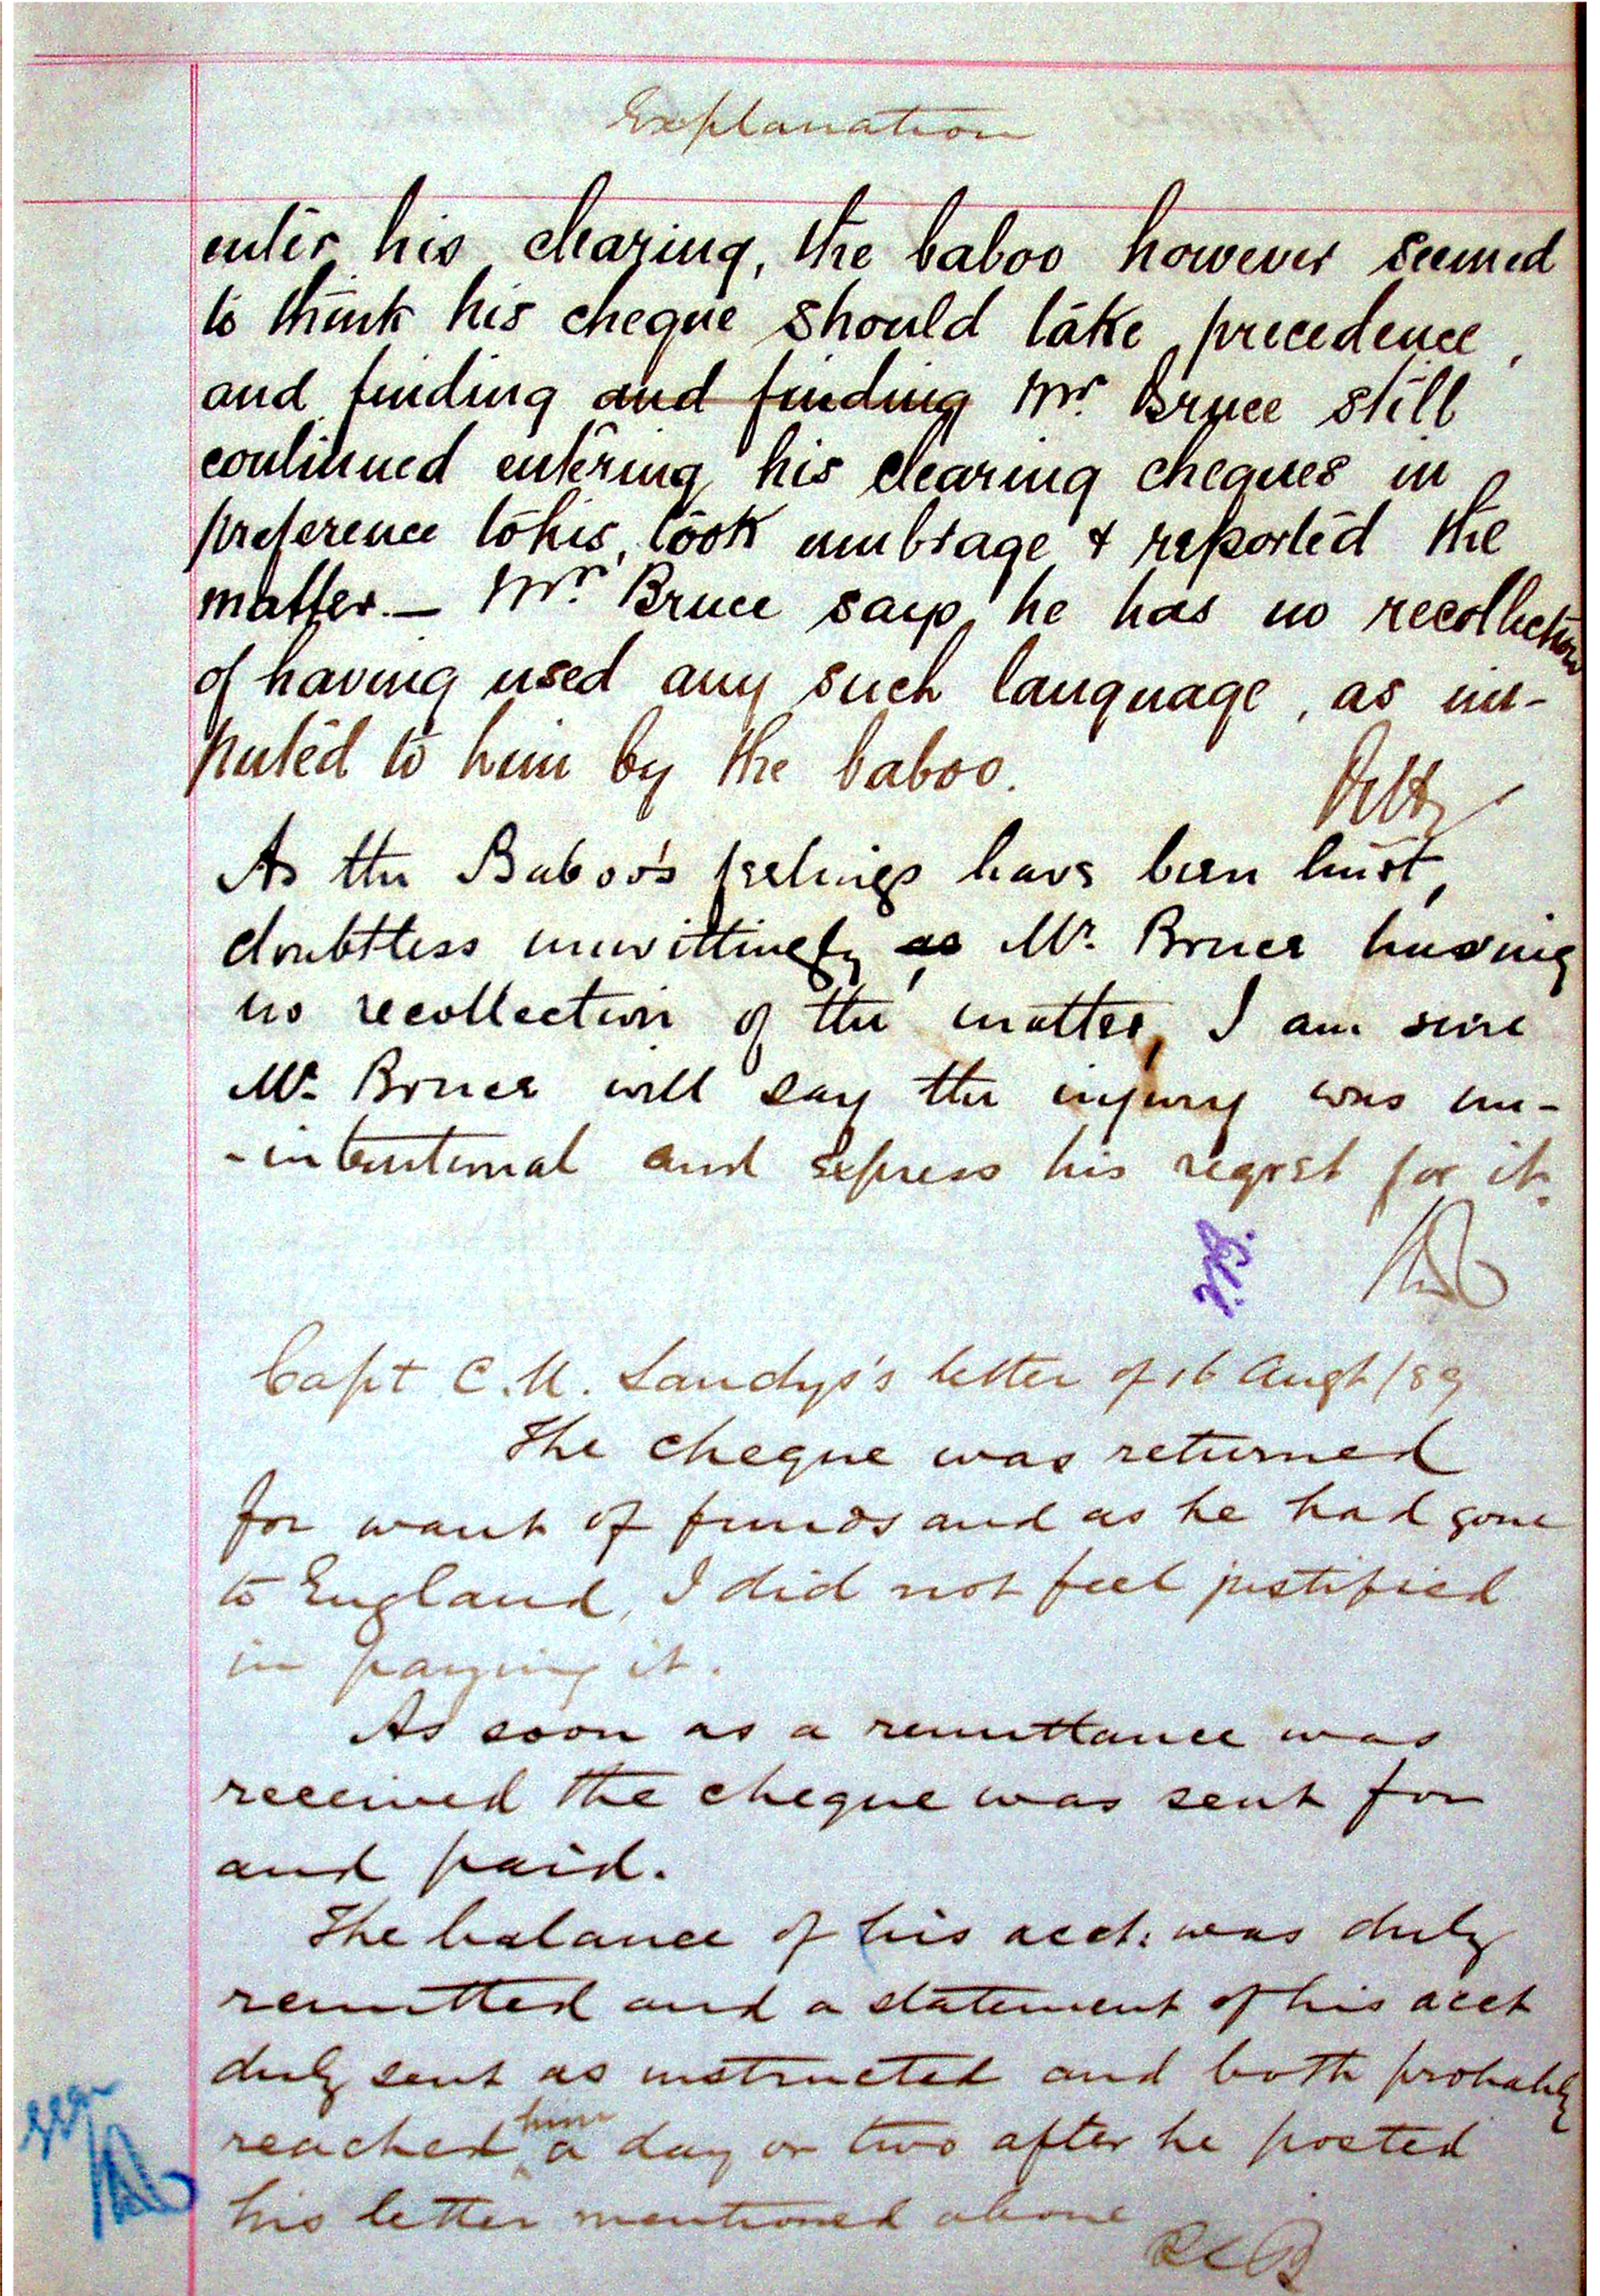 Explanation
enter his clearing, the baboo however seemed
to think his cheque should take precedence,
and finding and finding Mr. Bruce still
continued entering his clearing cheques in
preference to his, took umbrage & reported the
matter. — Mr. Bruce says he has no recollection
of having used any such language, as im-
puted to him by the baboo.
As the Baboo's feelings have been hurt,
doubtless unwittingly as Mr. Bruce having
no recollection of the matter, I am sure
Mr. Bruce will say the injury was un-
-intentional and express his regret for it.
Capt C. M. Sandys's letter of 16 Augt /89
The cheque was returned
for want of funds and as he had gone
to England, I did not feel justified
in paying it.
As soon as a remittance was
received the cheque was sent for
and paid.
The balance of his acct: was duly
remitted and a statement of his acct
duly sent as instructed and both probably
reached him a day or two after he posted
his letter mentioned above